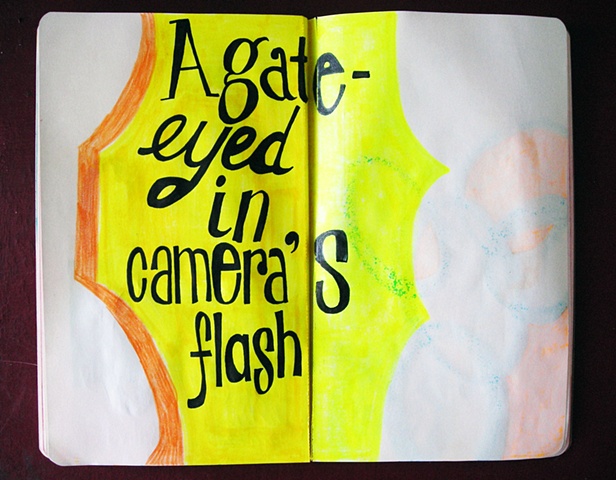 Agate-
eyed
in
camera's
flash